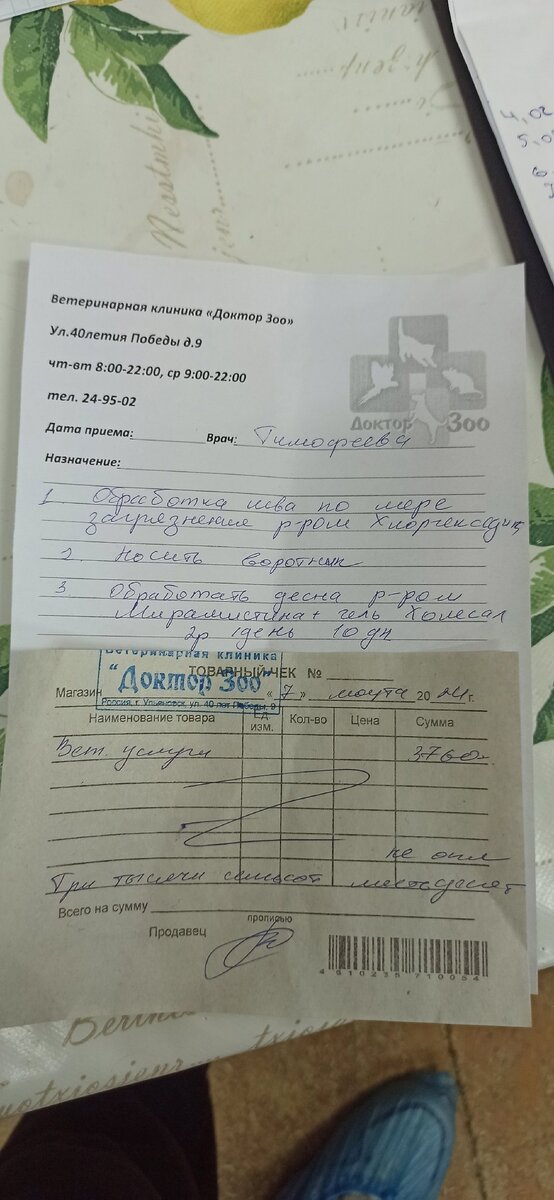 Ветеринарная клиника «Доктор Зоо»
Ул.40летия Победы д.9
чт-вт 8:00-22:00, ср 9:00-22:00
тел. 24-95-02
Доктор Зоо
Дата приема: Врач: Тимофеева
Назначение:
1 Обработка шва по мере
загрязнения р-ром Хлоргексидин
2. Носить воротник
3 Обработать десна р-ром
Мирамистина + гель Холисал
2р 1день 10дн
Ветеринарная клиника
"Доктор Зоо"
Россия, г. Ульяновск, ул. 40 лет Победы, 9
ТОВАРНЫЙ ЧЕК №
Магазин «7» марта 2024г.
Наименование товара Ед. изм. Кол-во Цена Сумма
Вет. услуги 3760-
не опл
Три тысячи семьсот шестьдесят
Всего на сумму
прописью
Продавец
4610235710054
Nesstmhi